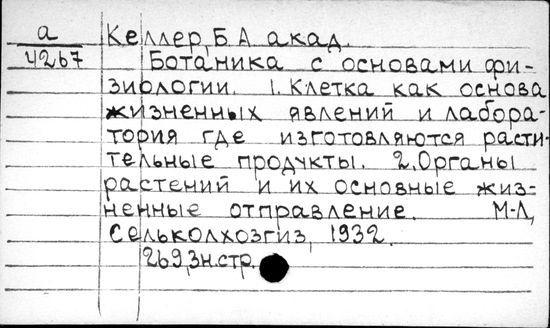 а Келлер, Б А акад.
4267 Ботаника с основами фи-
зиологии. 1. Клетка как основа
жизненных явлений и лабора-
тория где изготовляются расти-
тельные продукты. 2. Органы
растений и их основные жиз-
ненные отправление. М-Л,
Сельколхозгиз, 1932.
269, 3н. стр.